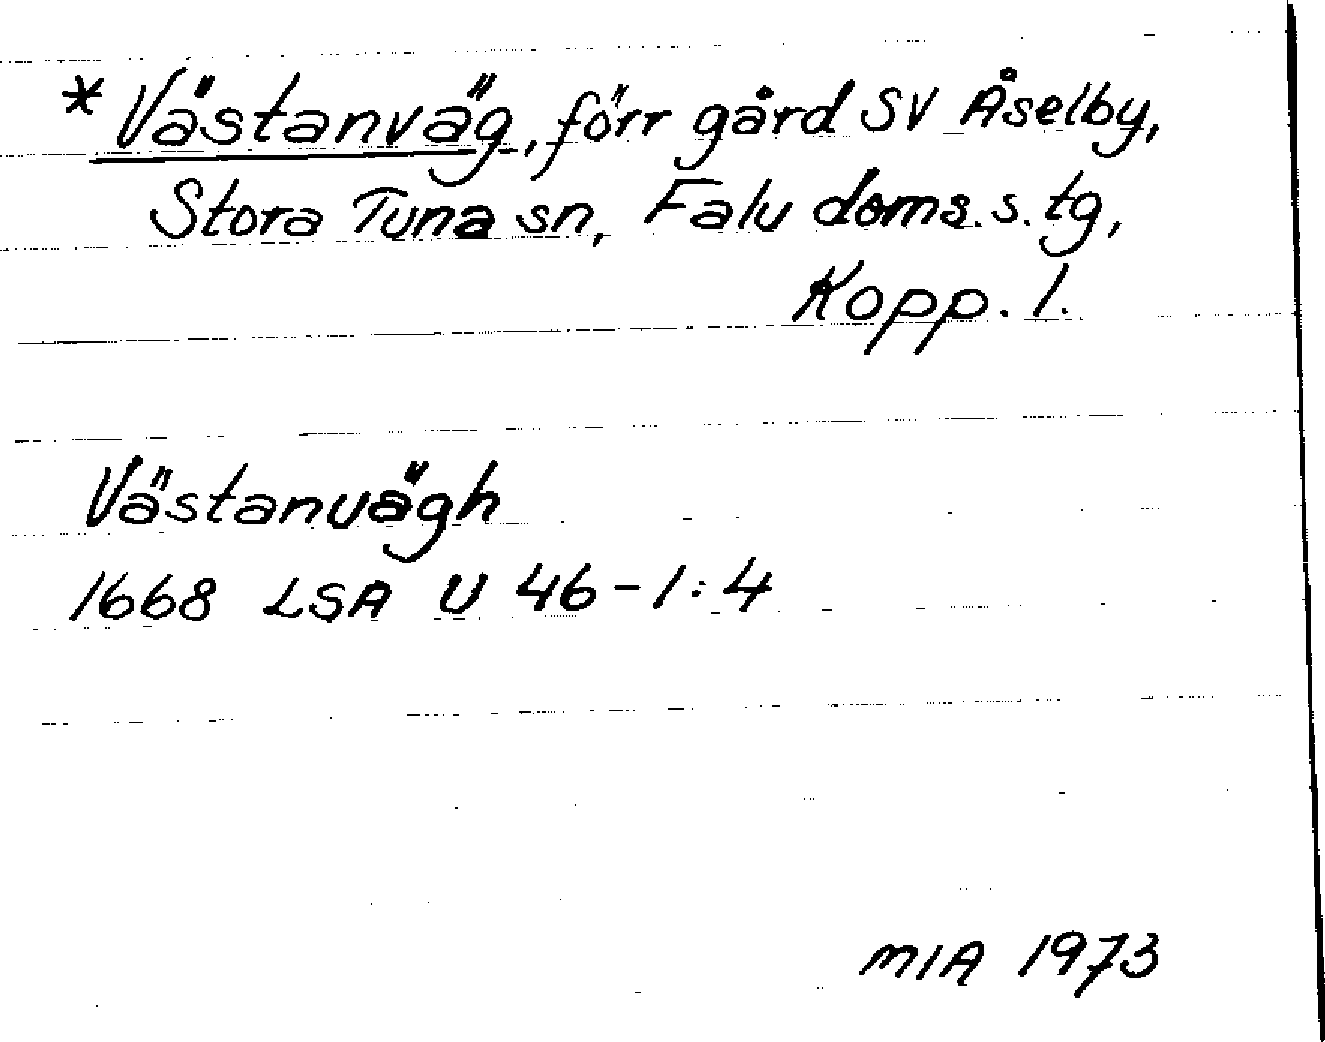 * Västanväg, förr gård SV Åselby,
Stora Tuna sn, Falu doms.s. tg,
Kopp. l.
Västanvägh
1668 LSA U 46-1:4
MIA 1973